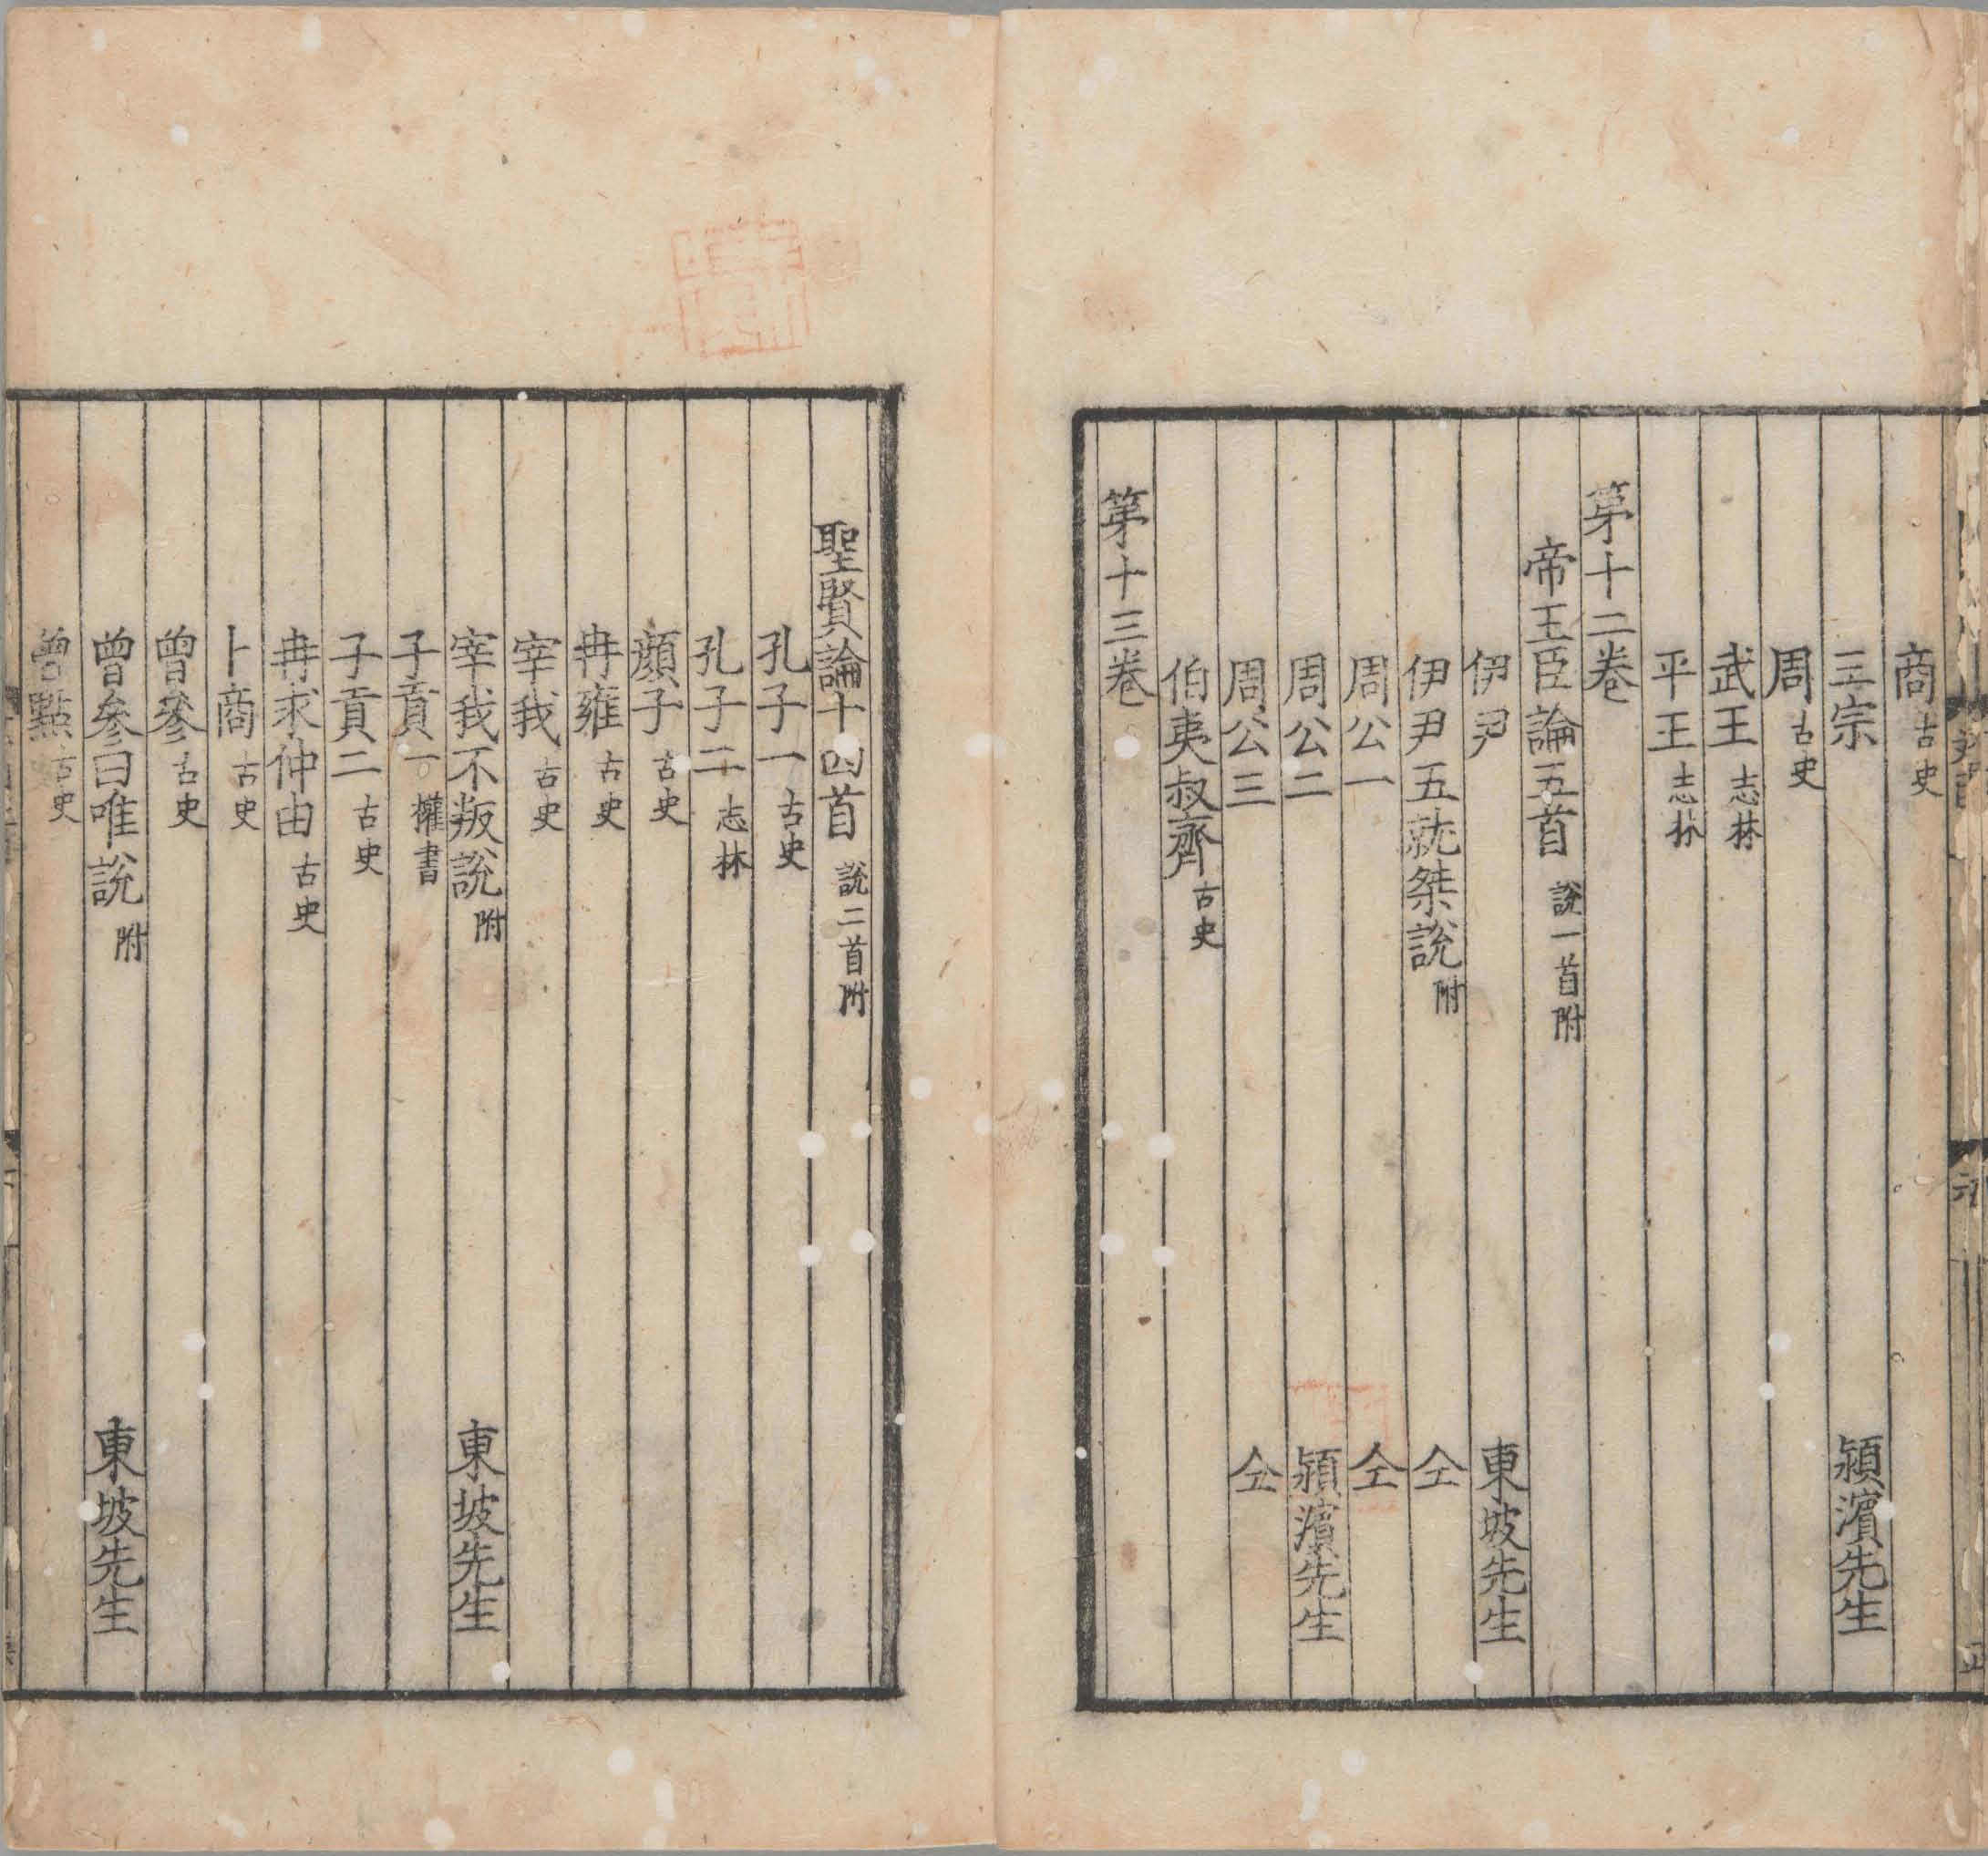 商 古史
三宗 潁濱先生
周 古史
武王 志林
平王 志林
第十二卷
帝王臣論五首 說一首附
伊尹 東坡先生
伊尹五就桀說 附 仝
周公一 仝
周公二 潁濱先生
周公三 仝
伯夷叔齊 古史
第十三卷
聖賢論十四首 說二首附
孔子一 古史
孔子二 志林
顏子 古史
冉雍 古史
宰我 古史
宰我不叛說 附 東坡先生
子貢一 權書
子貢二 古史
冉求仲由 古史
卜商 古史
曾參 古史
曾參曰唯說 附 東坡先生
曾點 古史